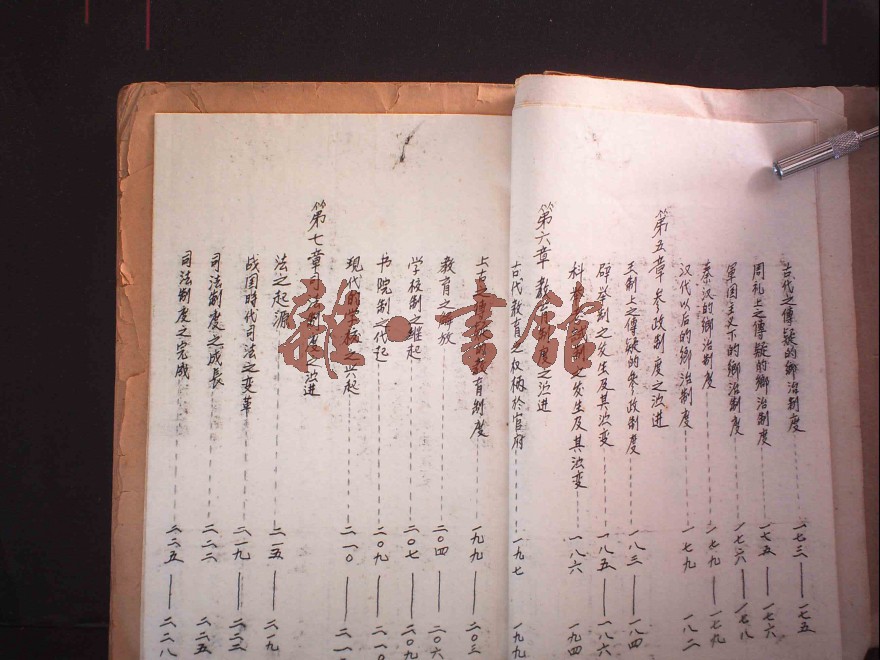 古代之傳疑的鄉治制度 一七三——一七五
周礼上之傳疑的鄉治制度 一七五——一七六
軍国主义下的鄉治制度 一七六——一七八
秦汉的鄉治制度 一七九——一七九
汉代以后的鄉治制度 一七九——一八二
第五章 参政制度之演进
王制上之傳疑的参政制度 一八三——一八四
辟举制之发生及其演变 一八五——一八六
科举之发生及其演变 一八六——一九四
第六章 教育制度之演进
古代教育之权柄於官府 一九七——一九九
上古之傳疑的教育制度 一九九——二〇三
教育之解放 二〇四——二〇六
学校制之继起 二〇七——二〇九
书院制之代起 二〇九——二一〇
現代的学校之兴起 二一〇——二一
第七章 司法制度之演进
法之起源 二一五——二一九
战国時代司法之变革 二一九——二二二
司法制度之成長 二二二——二二五
司法制度之完成 二二五——二二八
雜·書館